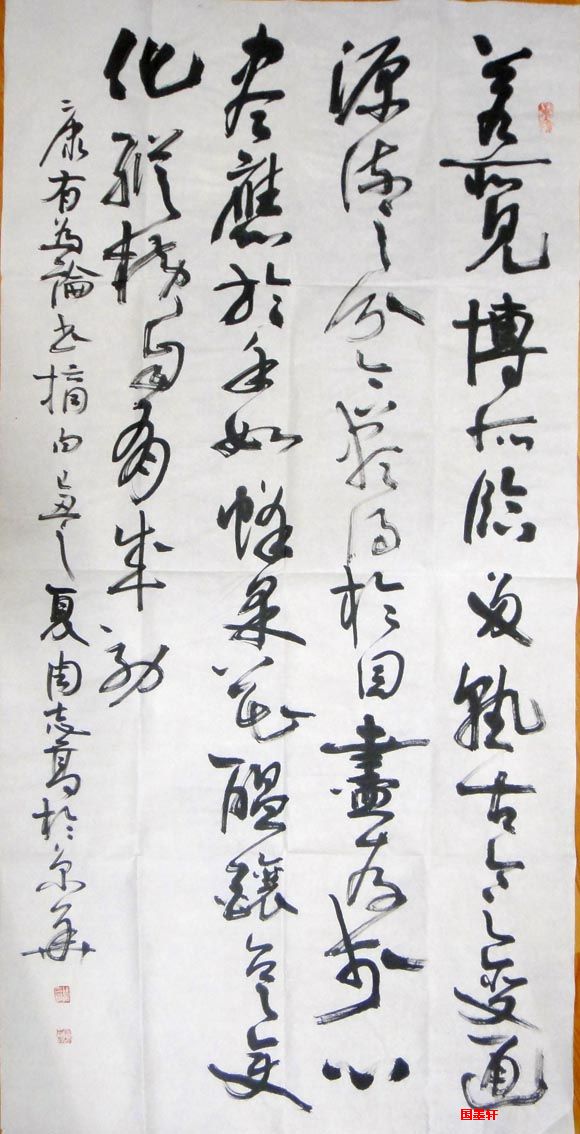 若所見博所臨多熟古今之變通
源流之分合尽得於目盡存於心
尽應於手如蜂采花醞釀久之变
化縱橫自有成効
康有為論书摘句己丑之夏周志高於京華
国墨轩